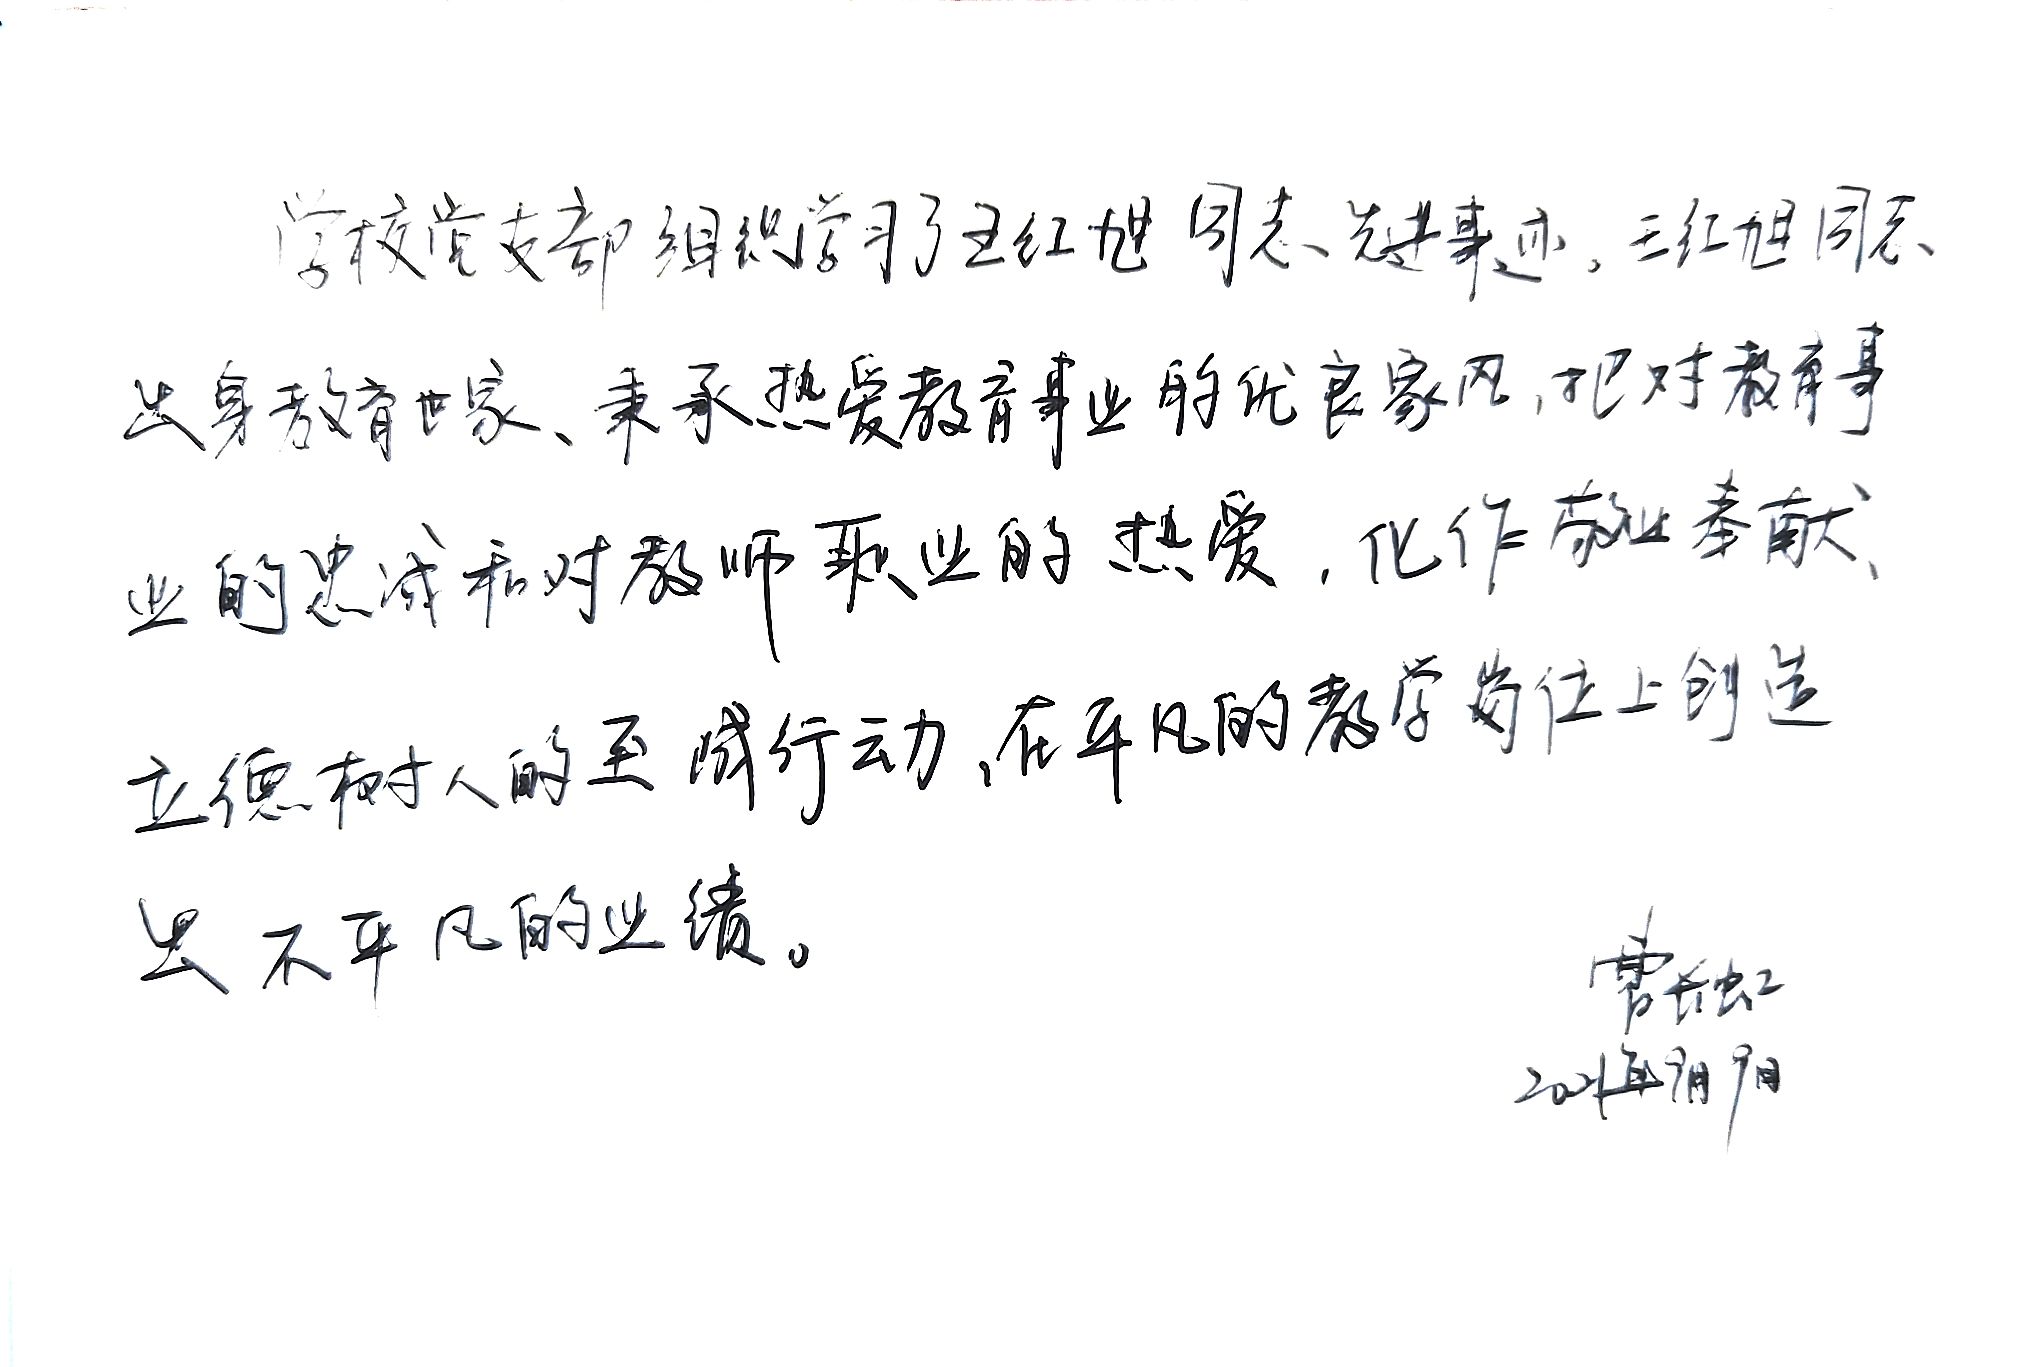 学校党支部组织学习了王红旭同志先进事迹，王红旭同志
出身教育世家、秉承热爱教育事业的优良家风，把对教育事
业的忠诚和对教师职业的热爱，化作敬业奉献、
立德树人的至诚行动，在平凡的教学岗位上创造
出不平凡的业绩。
曹长虹
2021年9月9日